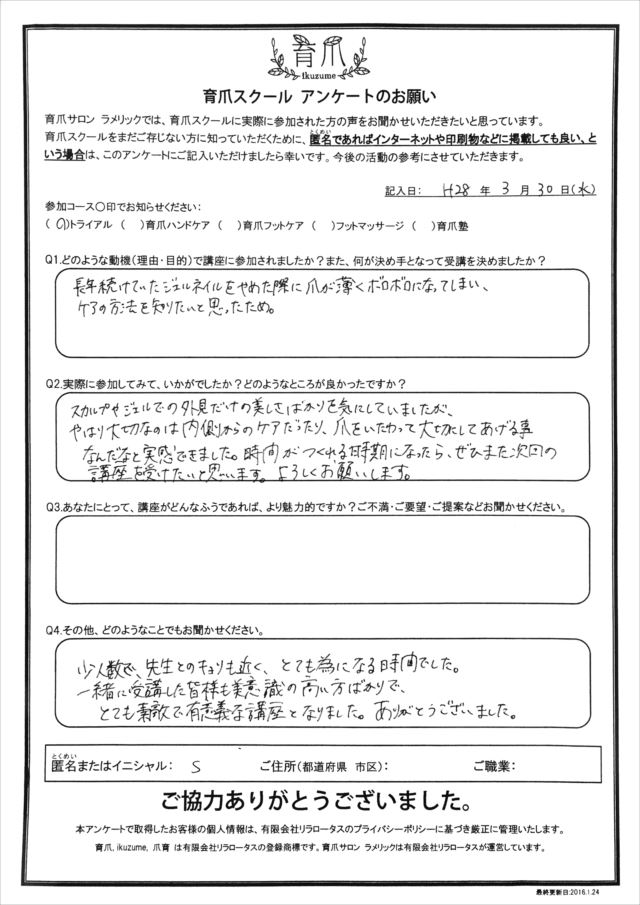 育爪
ikuzume
育爪スクール アンケートのお願い
育爪サロン ラメリックでは、育爪スクールに実際に参加された方の声をお聞かせいただきたいと思っています。
育爪スクールをまだご存じない方に知っていただくために、匿名であればインターネットや印刷物などに掲載しても良い、と
とくめい
いう場合は、このアンケートにご記入いただけましたら幸いです。今後の活動の参考にさせていただきます。
記入日: H28 年 3 月 30 日(水)
参加コース〇印でお知らせください:
(〇)トライアル ( )育爪ハンドケア ( )育爪フットケア ( )フットマッサージ ( )育爪塾
Q1.どのような動機(理由・目的)で講座に参加されましたか?また、何が決め手となって受講を決めましたか?
長年続けていたジェルネイルをやめた際に爪が薄くボロボロになってしまい、
ケアの方法を知りたいと思ったため。
Q2.実際に参加してみて、いかがでしたか?どのようなところが良かったですか?
スカルプやジェルでの外見だけの美しさばかりを気にしていましたが、
やはり大切なのは内側からのケアだったり、爪をいたわって大切にしてあげる事
なんだなと実感できました。時間がつくれる時期になったら、ぜひまた次回の
講座を受けたいと思います。よろしくお願いします。
Q3.あなたにとって、講座がどんなふうであれば、より魅力的ですか?ご不満・ご要望・ご提案などお聞かせください。
Q4.その他、どのようなことでもお聞かせください。
少人数で、先生とのキョリも近く、とても為になる時間でした。
一緒に受講した皆様も美意識の高い方ばかりで、
とても素敵で有意義な講座となりました。ありがとうございました。
とくめい
匿名またはイニシャル: S ご住所(都道府県 市区): ご職業:
ご協力ありがとうございました。
本アンケートで取得したお客様の個人情報は、有限会社リラロータスのプライバシーポリシーに基づき厳正に管理いたします。
育爪, ikuzume, 爪育 は有限会社リラロータスの登録商標です。育爪サロン ラメリックは有限会社リラロータスが運営しています。
最終更新日:2016.1.24